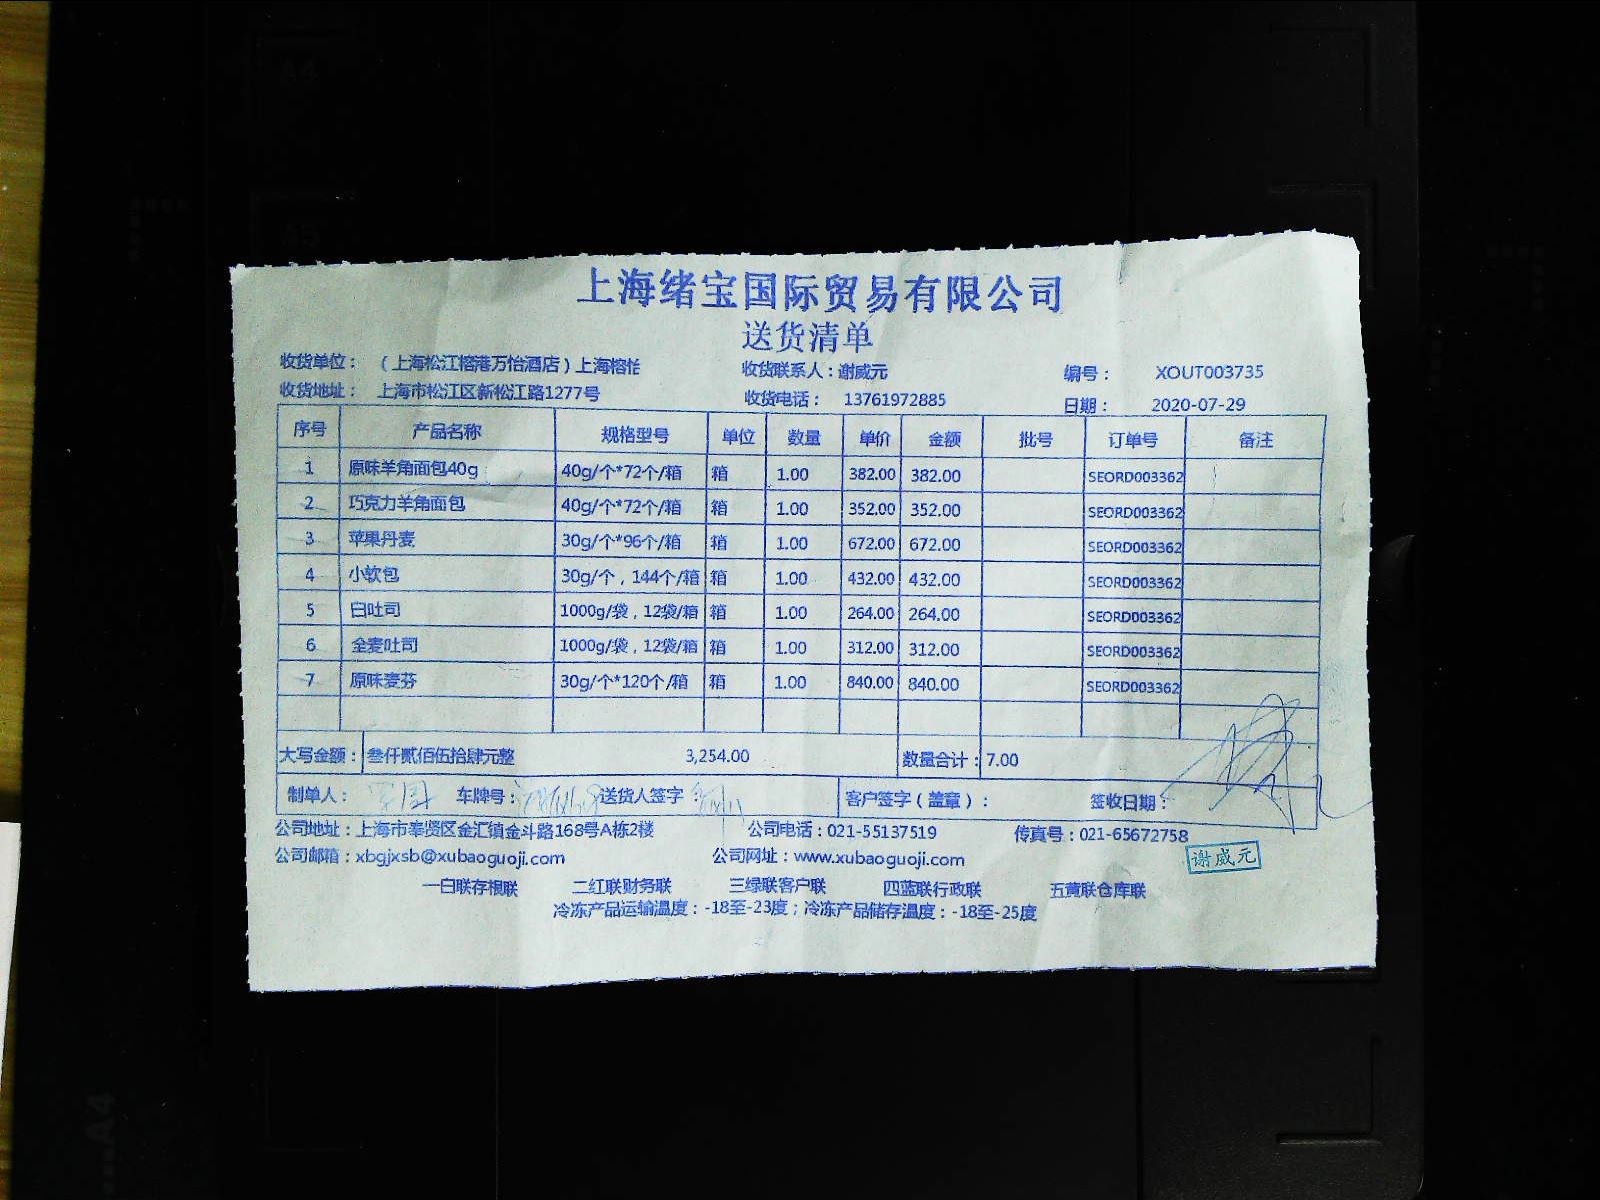 上海绪宝国际贸易有限公司
送货清单
收货单位： （上海松江榕港万怡酒店）上海榕怡 收货联系人：谢威元 编号： XOUT003735
收货地址： 上海市松江区新松江路1277号 收货电话： 13761972885 日期： 2020-07-29
序号 产品名称 规格型号 单位 数量 单价 金额 批号 订单号 备注
1 原味羊角面包40g 40g/个*72个/箱 箱 1.00 382.00 382.00 SEORD003362
2 巧克力羊角面包 40g/个*72个/箱 箱 1.00 352.00 352.00 SEORD003362
3 苹果丹麦 30g/个*96个/箱 箱 1.00 672.00 672.00 SEORD003362
4 小软包 30g/个，144个/箱 箱 1.00 432.00 432.00 SEORD003362
5 白吐司 1000g/袋，12袋/箱 箱 1.00 264.00 264.00 SEORD003362
6 全麦吐司 1000g/袋，12袋/箱 箱 1.00 312.00 312.00 SEORD003362
7 原味麦芬 30g/个*120个/箱 箱 1.00 840.00 840.00 SEORD003362
大写金额： 叁仟贰佰伍拾肆元整 3,254.00 数量合计： 7.00
制单人： 车牌号： 送货人签字： 客户签字（盖章）： 签收日期：
公司地址：上海市奉贤区金汇镇金斗路168号A栋2楼 公司电话：021-55137519 传真号：021-65672758
公司邮箱：xbgjxsb@xubaoguoji.com 公司网址：www.xubaoguoji.com 谢威元
一白联存根联 二红联财务联 三绿联客户联 四蓝联行政联 五黄联仓库联
冷冻产品运输温度：-18至-23度；冷冻产品储存温度：-18至-25度
A4
A5
A4